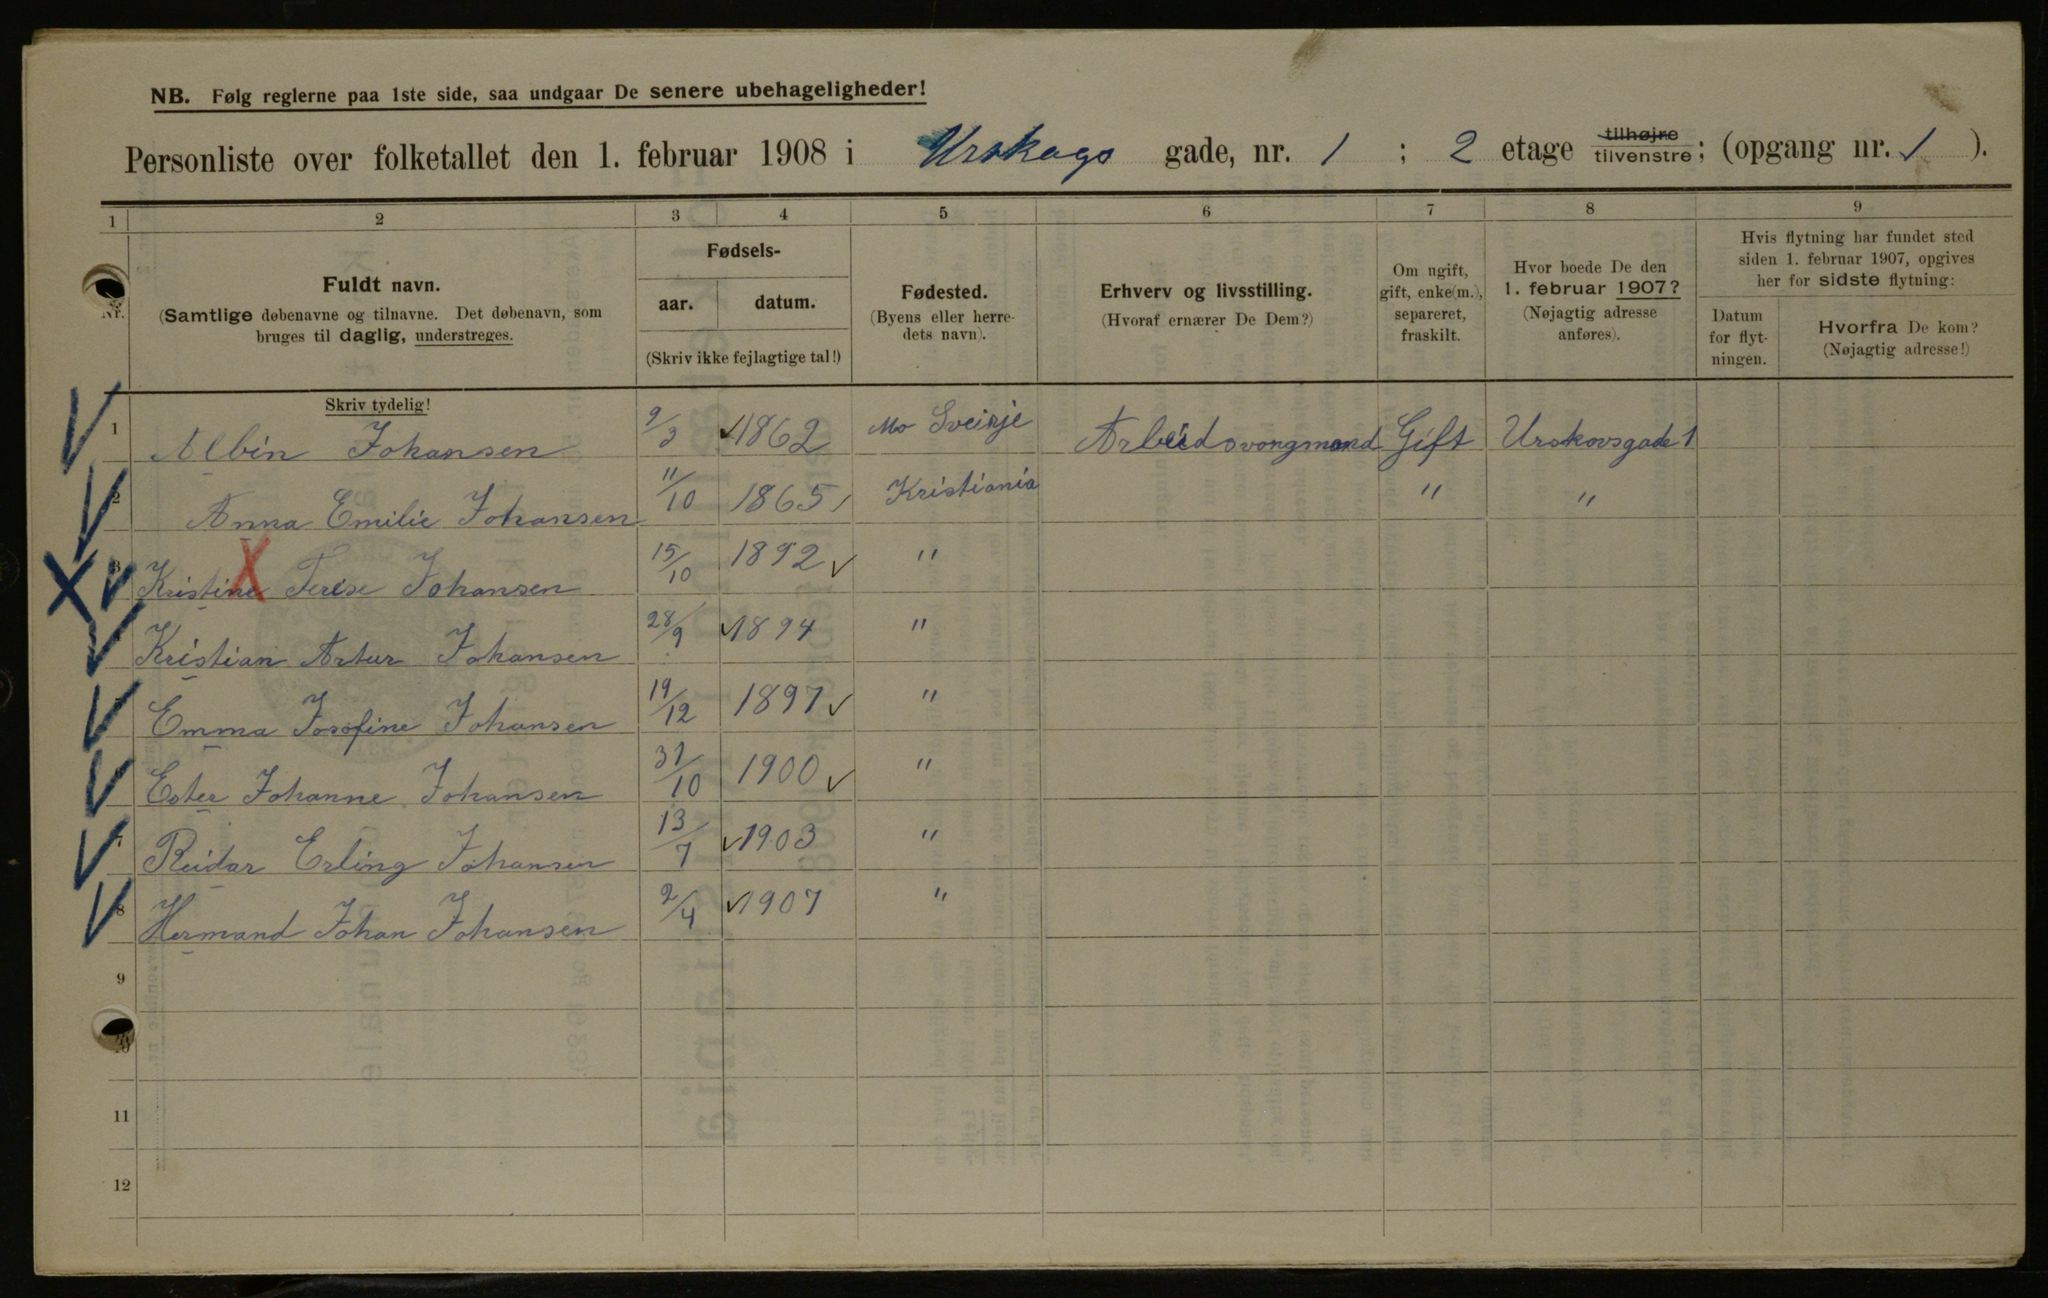 NB. Følg reglerne paa 1ste side, saa undgaar De senere ubehageligheder!
Personliste over folketallet den 1. februar 1908 i Urskogs gade, nr. 1 ; 2 etage tilhøjre tilvenstre; (opgang nr. 1 ).
1 2 3 4 5 6 7 8 9
Nr.
Fuldt navn.
(Samtlige døbenavne og tilnavne. Det døbenavn, som
bruges til daglig, understreges.
Fødsels-
aar. datum.
(Skriv ikke fejlagtige tal!)
Fødested.
(Byens eller herre-
dets navn).
Erhverv og livsstilling.
(Hvoraf ernærer De Dem?)
Om ugift,
gift, enke(m.),
separeret,
fraskilt.
Hvor boede De den
1. februar 1907?
(Nøjagtig adresse
anføres).
Hvis flytning har fundet sted
siden 1. februar 1907, opgives
her for sidste flytning:
Datum
for flyt-
ningen.
Hvorfra De kom?
(Nøjagtig adresse!)
Skriv tydelig!
1 Albin Johansen 9/3 1862 Mo Sveirje Arbeidsvongmand Gift Urskovsgade 1
2 Anna Emilie Johansen 11/10 1865 Kristiania " "
3 Kristine Terese Johansen 15/10 1892 "
Kristian Artur Johansen 28/9 1894 "
Emma Josofine Johansen 19/12 1897 "
Ester Johanne Johansen 31/10 1900 "
7 Reidar Erling Johansen 13/7 1903 "
8 Hermand Johan Johansen 2/4 1907 "
9
10
11
12